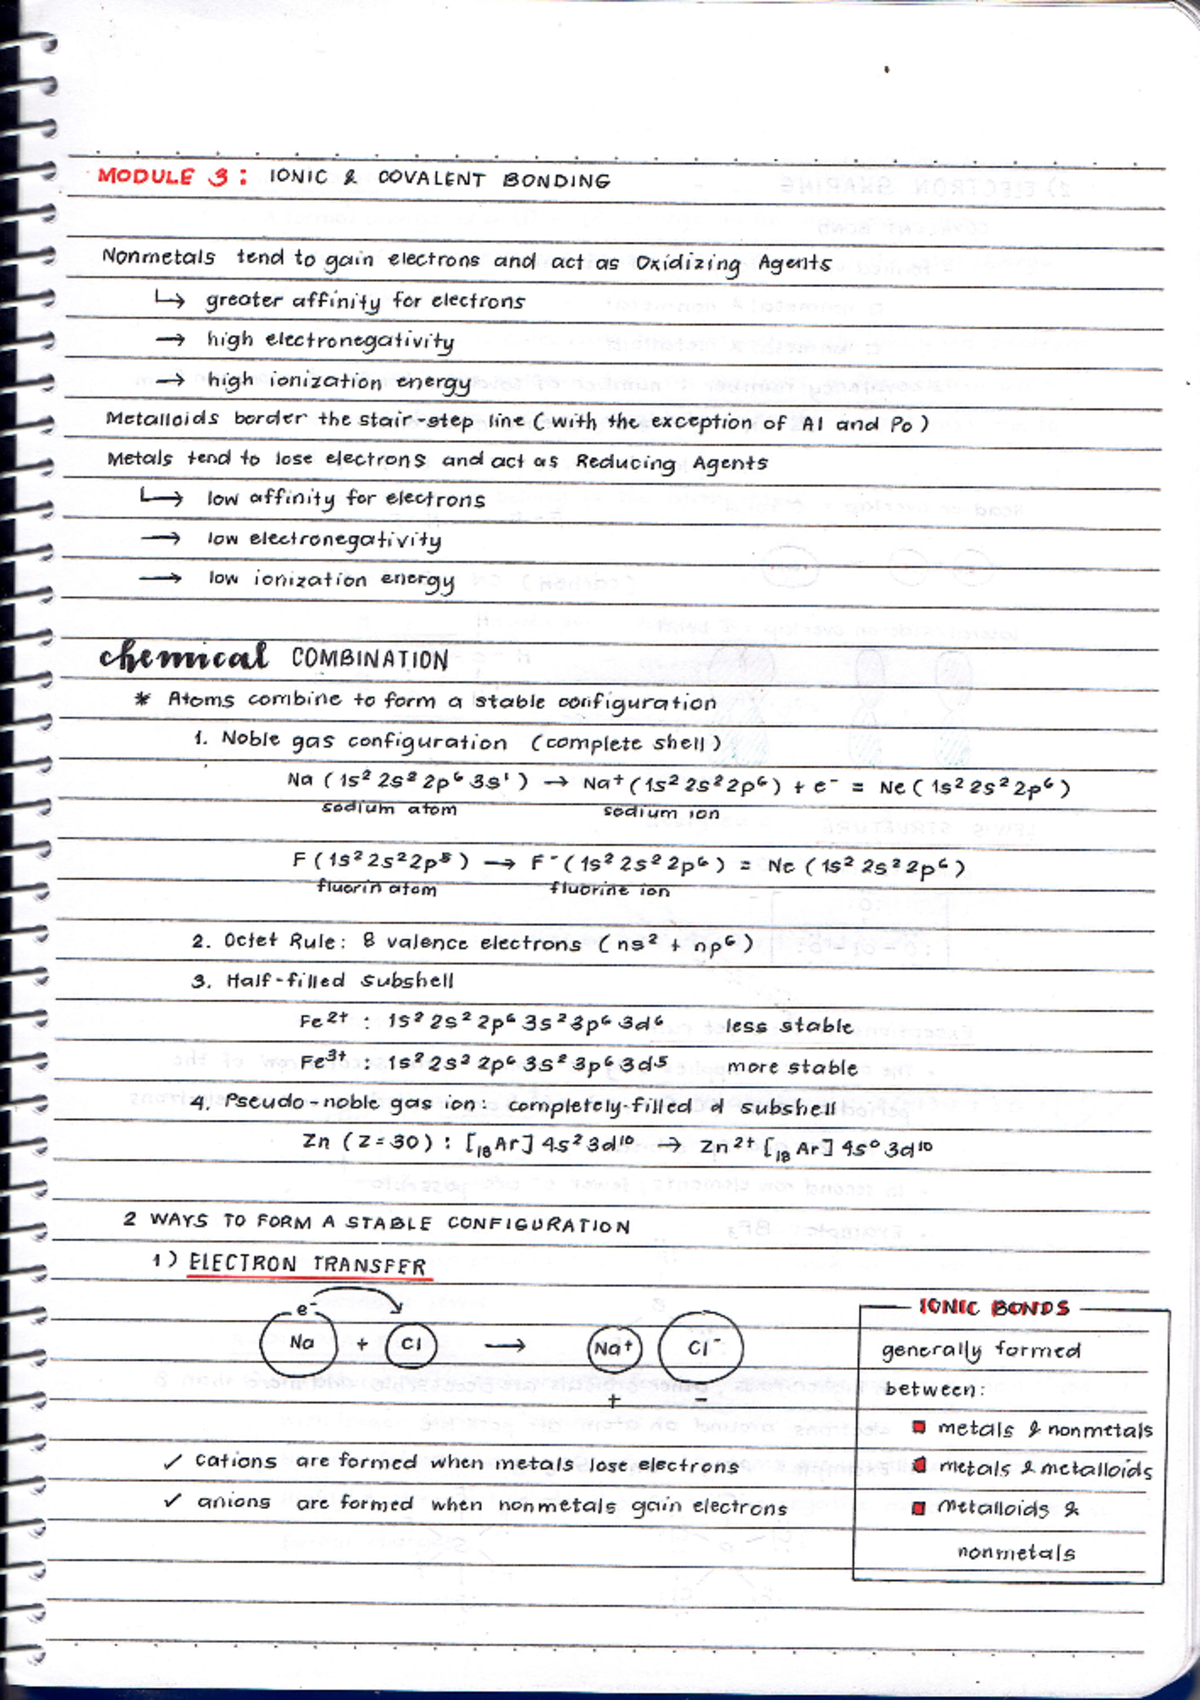 MODULE 3: IONIC & COVALENT BONDING
Nonmetals tend to gain electrons and act as Oxidizing Agents
↳ greater affinity for electrons
→ high electronegativity
→ high ionization energy
Metalloids border the stair-step line (with the exception of Al and Po)
Metals tend to lose electrons and act as Reducing Agents
↳ low affinity for electrons
→ low electronegativity
→ low ionization energy
chemical COMBINATION
* Atoms combine to form a stable configuration
1. Noble gas configuration (complete shell)
Na (1s² 2s² 2p⁶ 3s¹) → Na⁺ (1s² 2s² 2p⁶) + e⁻ = Ne (1s² 2s² 2p⁶)
sodium atom sodium ion
F (1s² 2s² 2p⁵) → F⁻ (1s² 2s² 2p⁶) = Ne (1s² 2s² 2p⁶)
fluorin atom fluorine ion
2. Octet Rule: 8 valence electrons (ns² + np⁶)
3. Half-filled subshell
Fe²⁺ : 1s² 2s² 2p⁶ 3s² 3p⁶ 3d⁶ less stable
Fe³⁺ : 1s² 2s² 2p⁶ 3s² 3p⁶ 3d⁵ more stable
4. Pseudo-noble gas ion: completely-filled d subshell
Zn (Z = 30) : [₁₈Ar] 4s² 3d¹⁰ → Zn²⁺ [₁₈Ar] 4s⁰ 3d¹⁰
2 WAYS TO FORM A STABLE CONFIGURATION
1) ELECTRON TRANSFER
e⁻
Na + Cl → Na⁺ Cl⁻
+ −
✓ cations are formed when metals lose electrons
✓ anions are formed when nonmetals gain electrons
IONIC BONDS
generally formed
between:
■ metals & nonmetals
■ metals & metalloids
■ metalloids &
nonmetals